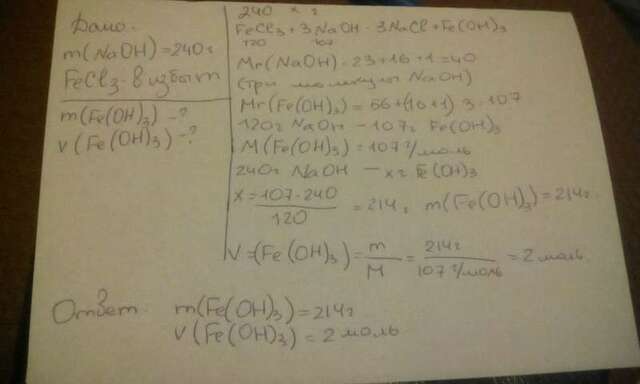 Дано:
m(NaOH)=240г
FeCl₃-в избыт
m(Fe(OH)₃)-?
v(Fe(OH)₃)-?
240 x г
FeCl₃+3NaOH=3NaCl+Fe(OH)₃
120 107
Mr(NaOH)=23+16+1=40
(три молекулы NaOH)
Mr(Fe(OH)₃)=56+(16+1)·3=107
120г NaOH – 107г Fe(OH)₃
M(Fe(OH)₃)=107г/моль
240г NaOH – x г Fe(OH)₃
x=107·240/120=214г m(Fe(OH)₃)=214г
V=(Fe(OH)₃)=m/M=214г/107г/моль=2моль.
Ответ: m(Fe(OH)₃)=214г
v(Fe(OH)₃)=2моль